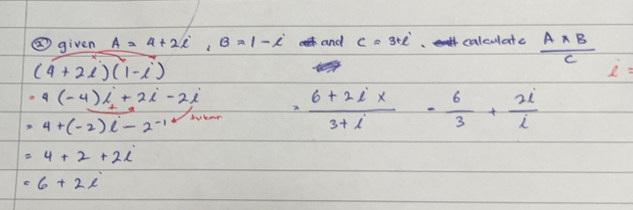 ② given A = 4+2i , B = 1-i and C = 3+i . calculate A × B / C
(4+2i)(1-i)
= 4(-4)i + 2i - 2i
= 4+(-2)i - 2⁻¹ tukar
= 4 + 2 + 2i
= 6 + 2i
= 6 + 2i × / 3 + i = 6/3 + 2i/i
i =